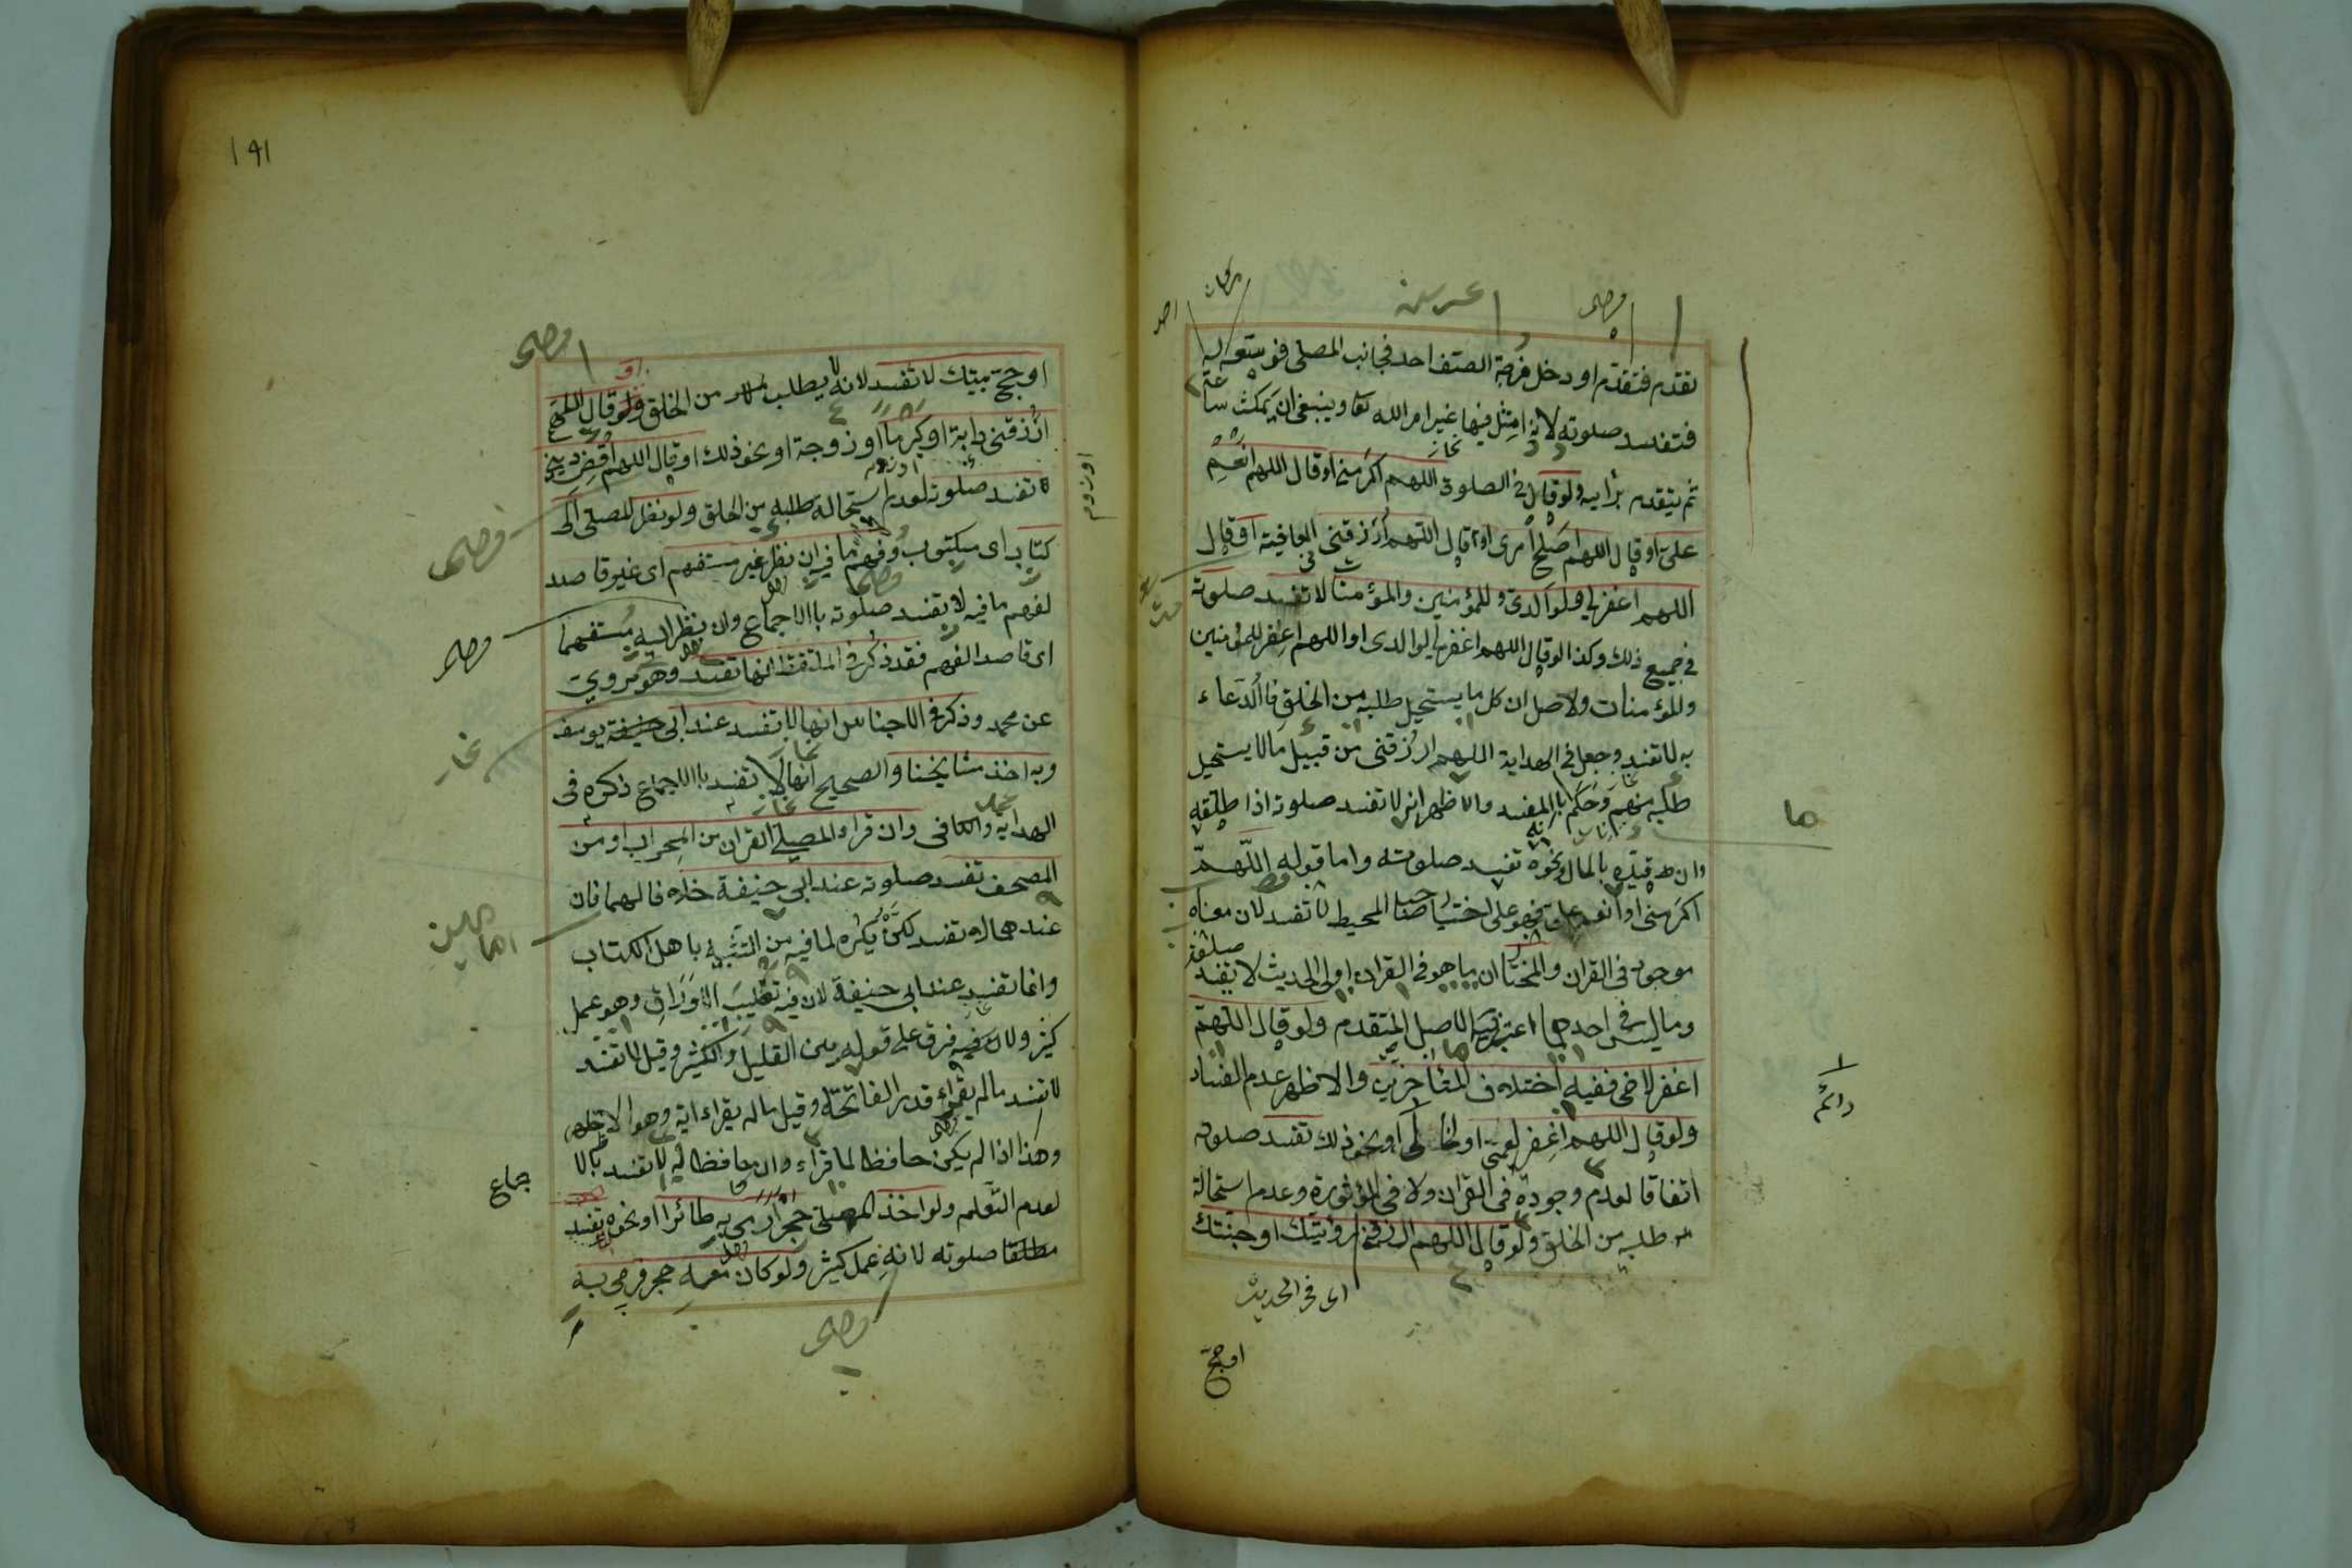 تقدم فتقدم او دخل فرجة الصف احد فجانب المصلى فوسعه له
فتفسد صلوته لانه امتثل فيها غير امر الله تعا وينبغى ان يمكث ساعة
ثم يتقدم برأيه ولو قال فى الصلوة اللهم اكرمنى او قال اللهم انعم
على او قال اللهم اصلح امرى او قال اللهم ارزقنى العافية او قال
اللهم اغفر لى ولوالدى وللمؤمنين والمؤمنات لا تفسد صلوته
فى جميع ذلك وكذا لو قال اللهم اغفر لى لوالدى او اللهم اغفر للمؤمنين
وللمؤمنات ولاصل ان كل ما يستحيل طلبه من الخلق فا الدعاء
به لا تفسد وجعل فى الهداية اللهم ارزقنى من قبيل ما لا يستحيل
طلبه منهم وحكم بالمفسد والاظهر انه لا تفسد صلوته اذا طلقه
وان قيده بالمال ونحوه تفسد صلوته واما قوله اللهم
اكرمنى او انعم على فهو على اختيار صاحب المحيط لا تفسد لان معناه
موجود فى القران والمختار ان ما هو فى القران او فى الحديث لا تفسد
وما ليس فى احدهما اعتبر فيه الاصل المتقدم ولو قال اللهم
اغفر لاخى ففيه اختلاف المتأخرين والاظهر عدم الفساد
ولو قال اللهم اغفر لعمى او لخالى او نحو ذلك تفسد صلوته
اتفاقا لعدم وجوده فى القران ولا فى المؤثورة وعدم استحالة
طلبه من الخلق ولو قال اللهم ارزقنى رؤيتك او جنتك
اى فى الحديث
او حج
دائم
ها
191
او حج بيتك لا تفسد لانه لا يطلب من الخلق ولو قال اللهم
ارزقنى دابة او كرما او زوجة او نحو ذلك او قال اللهم اقض دينى
تفسد صلوته لعدم استحالة طلبه من الخلق ولو نظر المصلى الى
كتاب اى مكتوب وفهم ما فيه ان نظر غير مستفهم اى غير قاصد
لفهم ما فيه لا تفسد صلوته باالاجماع وان نظر اليه مستفهما
اى قاصد الفهم فقد ذكر فى الملتقط انها تفسد وهو مروى
عن محمد وذكر فى الاجناس انها لا تفسد عند ابى حنيفة يوسف
وبه اخذ مشايخنا والصحيح انها لا تفسد باالاجماع ذكره فى
الهداية والكافى وان قراء المصلى القران من المحراب او من
المصحف تفسد صلوته عند ابى حنيفة خلافا لهما فان
عندهما لا تفسد لكنه يكره لما فيه من التشبه باهل الكتاب
وانما تفسد عند ابى حنيفة لان فيه تقليب الاوراق وهو عمل
كثير ولا فرق على قوله بين القليل والكثير وقيل لا تفسد
لا تفسد مالم يقراء قدر الفاتحة وقيل ماله يقراء اية وهو الاظهر
وهذا اذا لم يكن حافظا لما قراء وان حافظا له لا تفسد بالا
جماع
لعدم التعلم ولو اخذ المصلى حجرا رمى به طائرا او نحوه تفسد
مطلقا صلوته لانه عمل كثير ولو كان معه حجر فرمى به